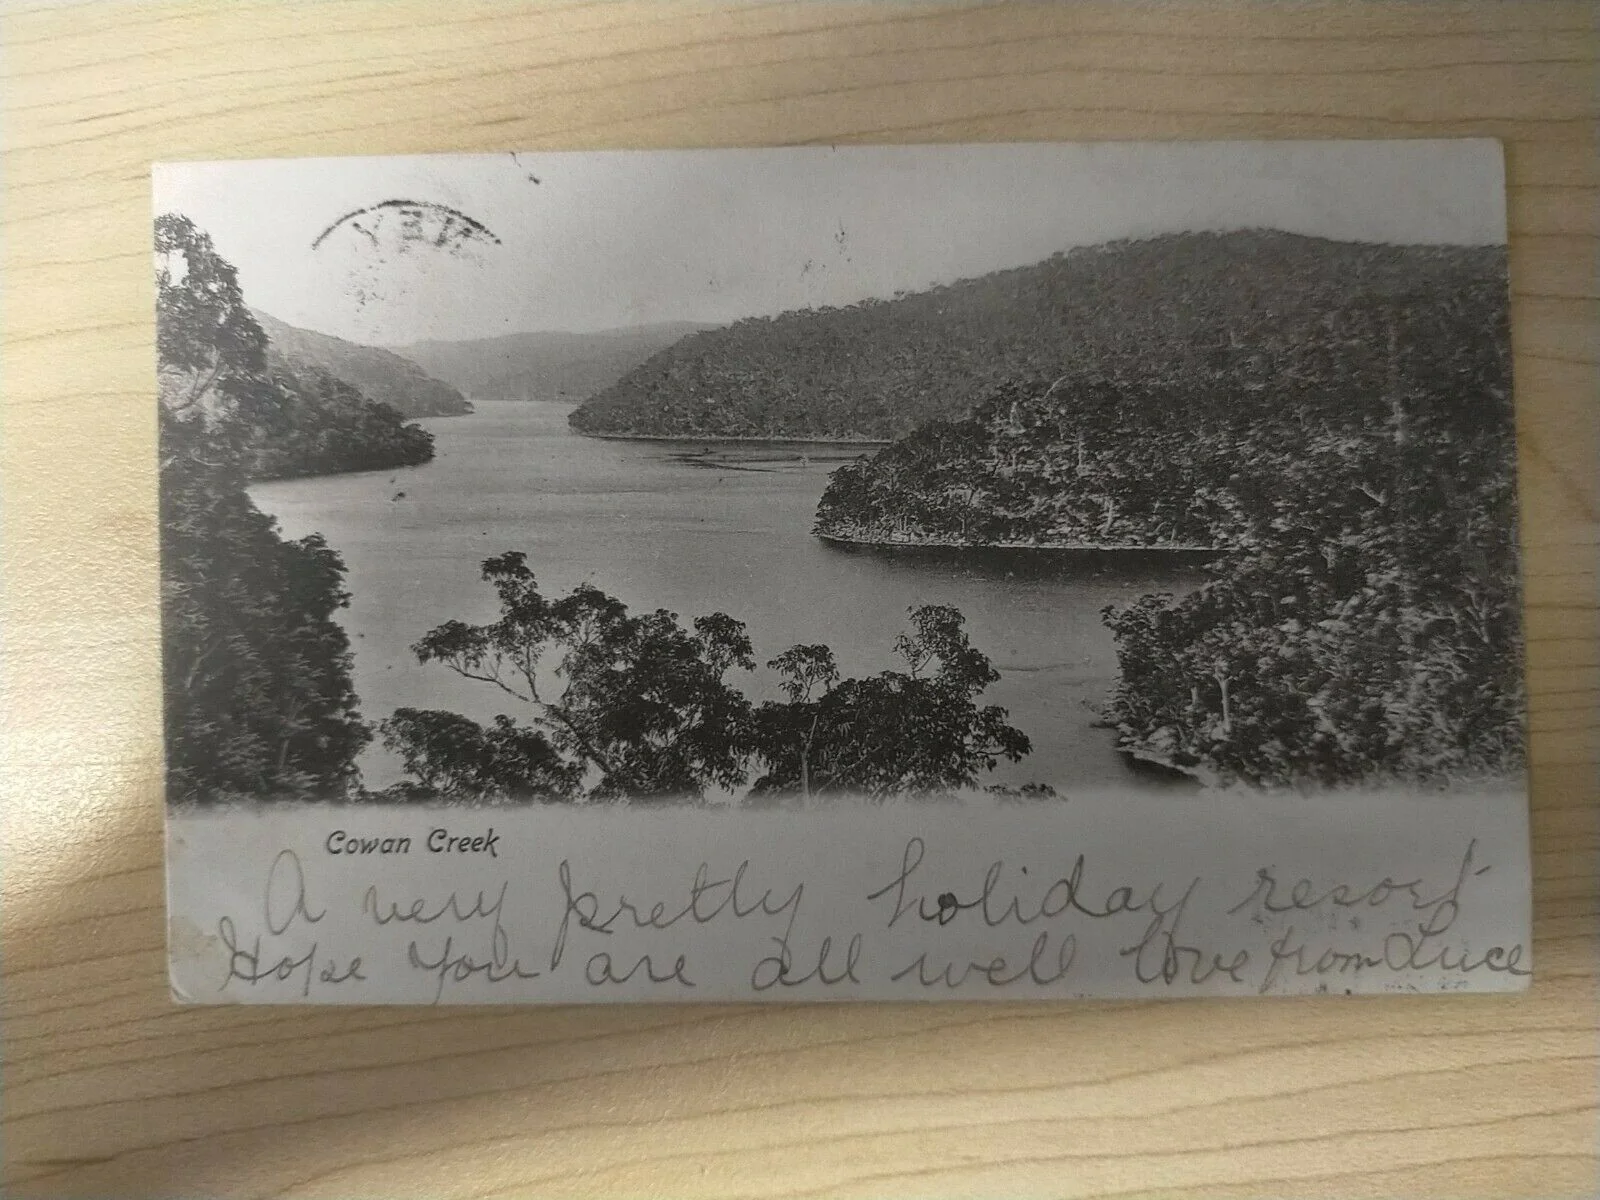 Cowan Creek
A very pretty holiday resort
Hope you are all well love from Luce